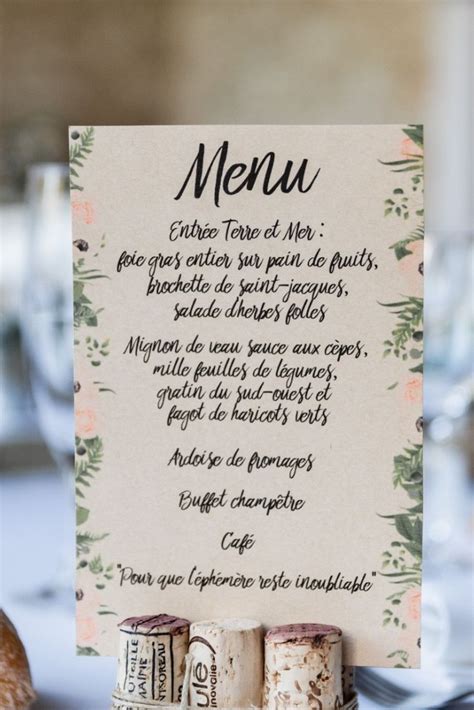 Menu
Entrée Terre et Mer :
foie gras entier sur pain de fruits,
brochette de saint-jacques,
salade d'herbes folles
Mignon de veau sauce aux cèpes,
mille feuilles de légumes,
gratin du sud-ouest et
fagot de haricots verts
Ardoise de fromages
Buffet champêtre
Café
"Pour que l'éphémère reste inoubliable"